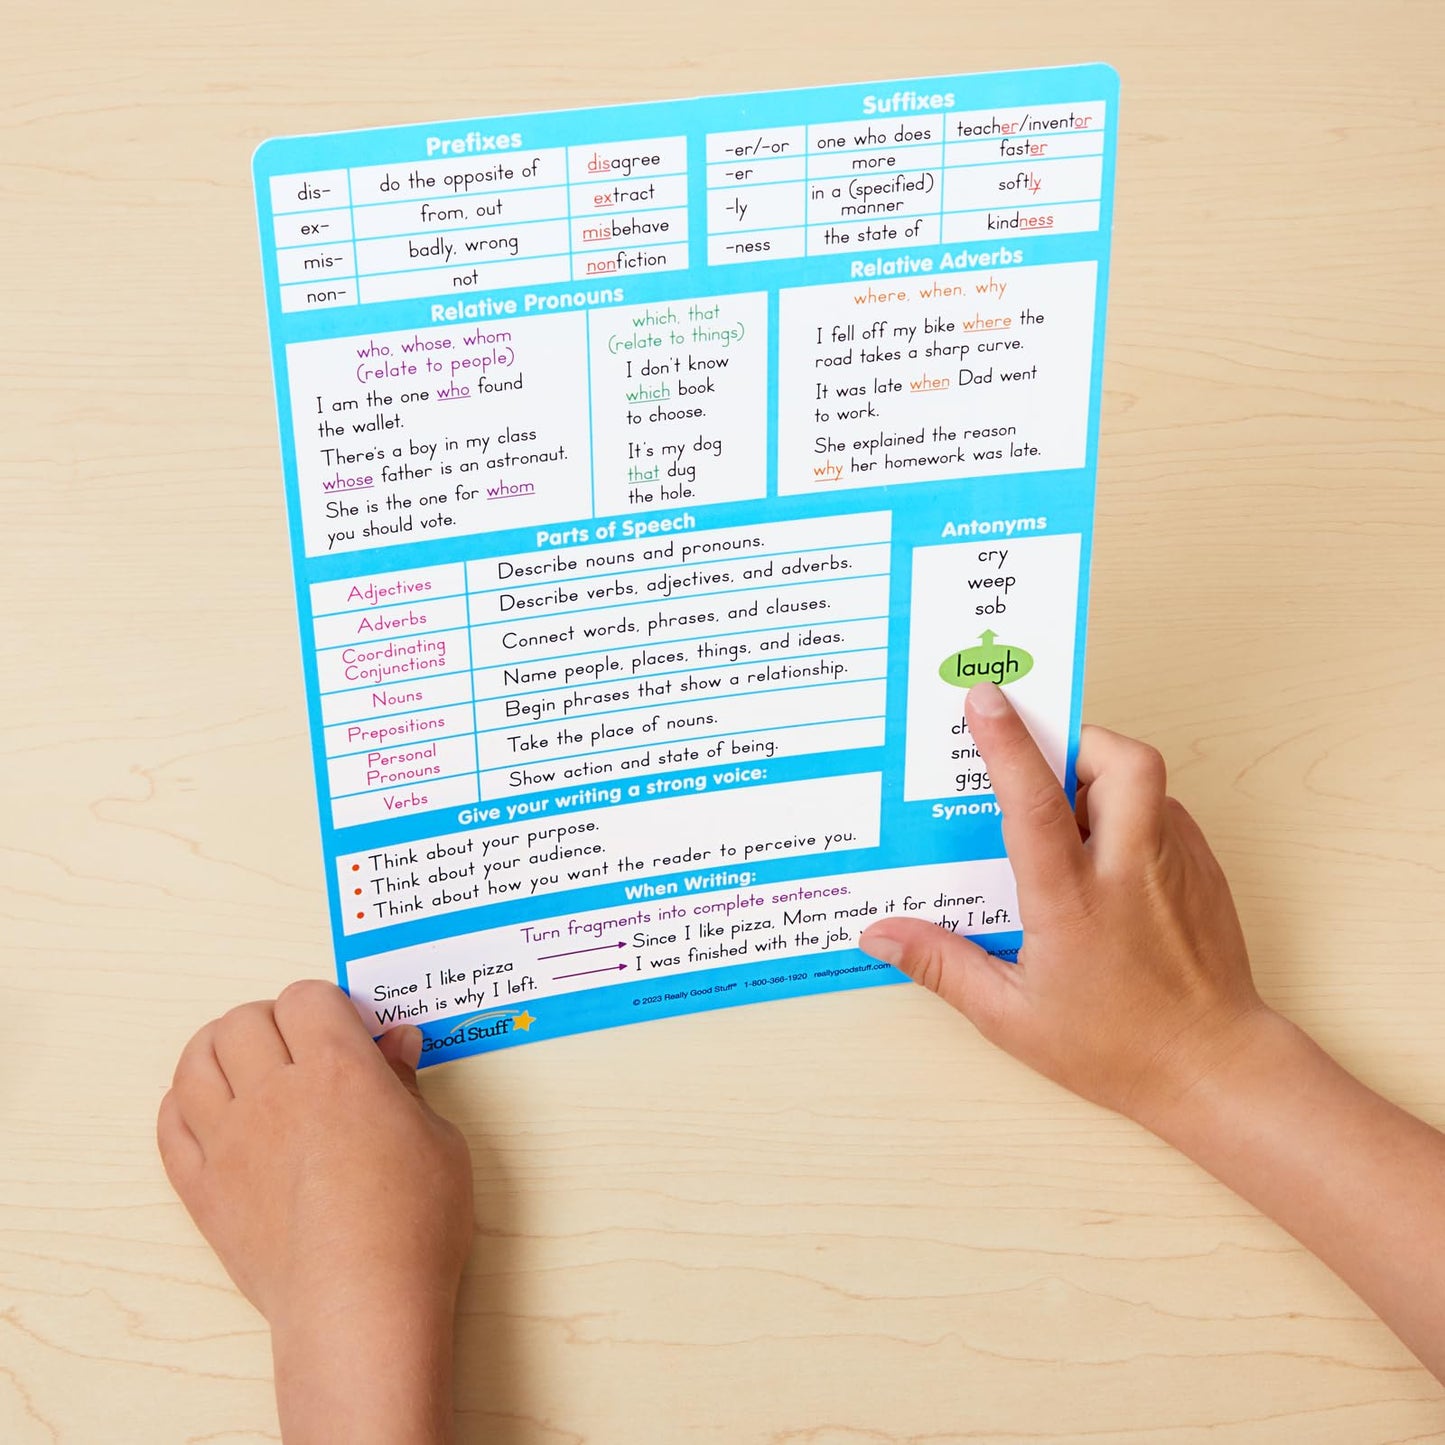 Prefixes
dis- do the opposite of disagree
ex- from, out extract
mis- badly, wrong misbehave
non- not nonfiction
Suffixes
-er/-or one who does teacher/inventor
-er more faster
-ly in a (specified) softly
manner
-ness the state of kindness
Relative Pronouns
who, whose, whom
(relate to people)
I am the one who found
the wallet.
There's a boy in my class
whose father is an astronaut.
She is the one for whom
you should vote.
which, that
(relate to things)
I don't know
which book
to choose.
It's my dog
that dug
the hole.
Relative Adverbs
where, when, why
I fell off my bike where the
road takes a sharp curve.
It was late when Dad went
to work.
She explained the reason
why her homework was late.
Parts of Speech
Adjectives Describe nouns and pronouns.
Adverbs Describe verbs, adjectives, and adverbs.
Coordinating
Conjunctions Connect words, phrases, and clauses.
Nouns Name people, places, things, and ideas.
Prepositions Begin phrases that show a relationship.
Personal
Pronouns Take the place of nouns.
Verbs Show action and state of being.
Antonyms
cry
weep
sob
laugh
Give your writing a strong voice:
• Think about your purpose.
• Think about your audience.
• Think about how you want the reader to perceive you.
When Writing:
Turn fragments into complete sentences.
Since I like pizza → Since I like pizza, Mom made it for dinner.
Which is why I left. → I was finished with the job, why I left.
Good Stuff
© 2023 Really Good Stuff® 1-800-366-1920 reallygoodstuff.com